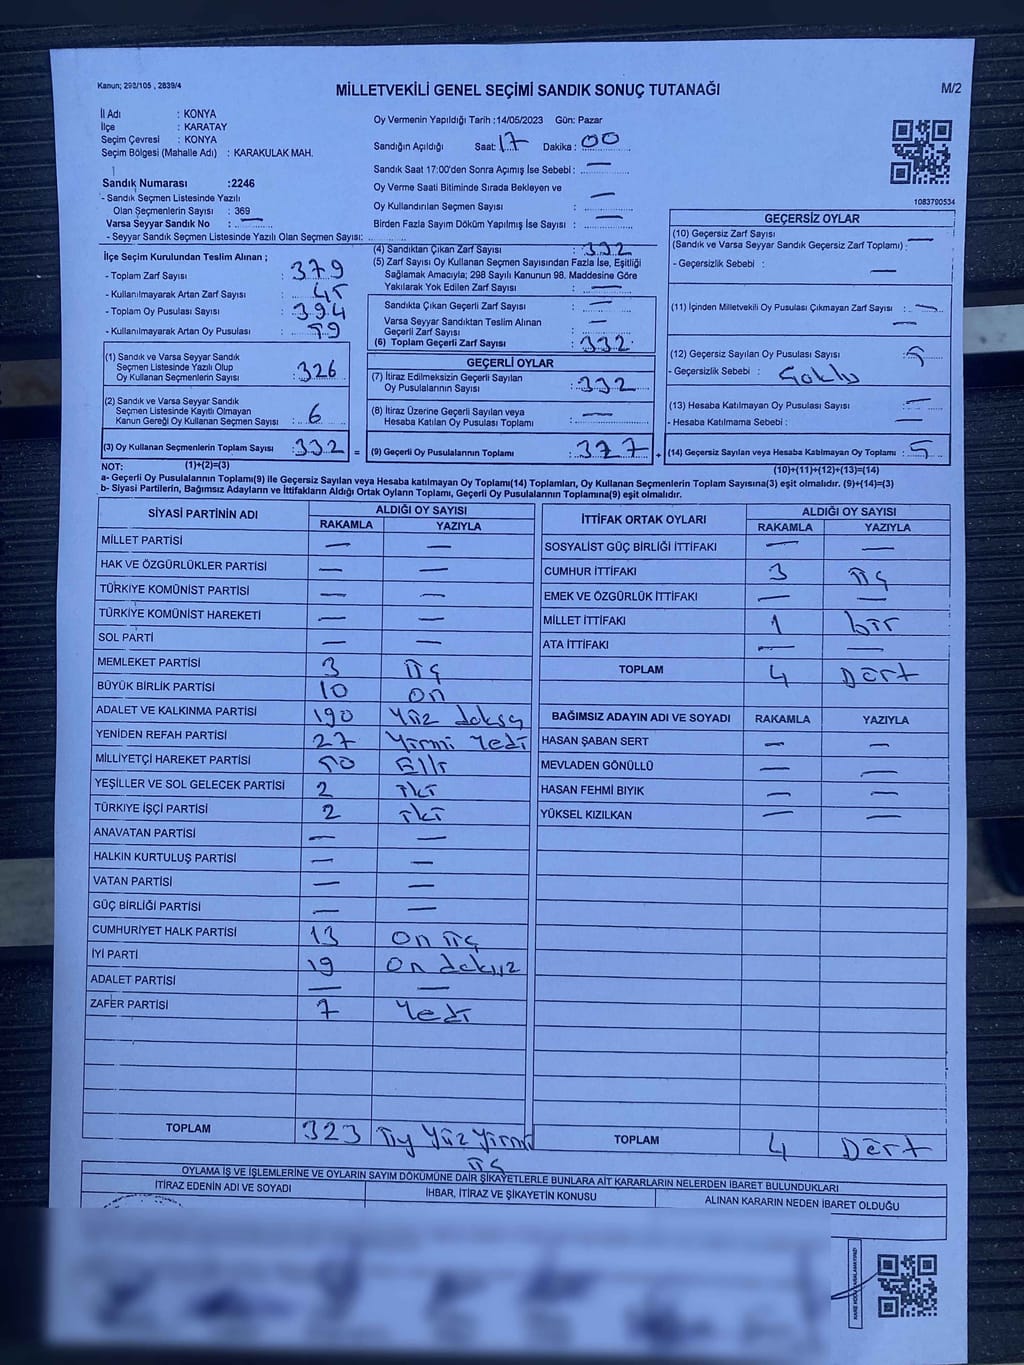 Kanun; 298/105 , 2839/4
MİLLETVEKİLİ GENEL SEÇİMİ SANDIK SONUÇ TUTANAĞI
M/2
İl Adı : KONYA
İlçe : KARATAY
Seçim Çevresi : KONYA
Seçim Bölgesi (Mahalle Adı) : KARAKULAK MAH.
Sandık Numarası :2246
- Sandık Seçmen Listesinde Yazılı
Olan Seçmenlerin Sayısı : 369
Varsa Seyyar Sandık No : —
- Seyyar Sandık Seçmen Listesinde Yazılı Olan Seçmen Sayısı:
Oy Vermenin Yapıldığı Tarih :14/05/2023 Gün: Pazar
Sandığın Açıldığı Saat: 17 Dakika : 00
Sandık Saat 17:00'den Sonra Açımış İse Sebebi : —
Oy Verme Saati Bitiminde Sırada Bekleyen ve
Oy Kullandırılan Seçmen Sayısı : —
Birden Fazla Sayım Döküm Yapılmış İse Sayısı : —
1083790534
İlçe Seçim Kurulundan Teslim Alınan ;
- Toplam Zarf Sayısı : 379
- Kullanılmayarak Artan Zarf Sayısı : 45
- Toplam Oy Pusulası Sayısı : 394
- Kullanılmayarak Artan Oy Pusulası : 59
(1) Sandık ve Varsa Seyyar Sandık
Seçmen Listesinde Yazılı Olup
Oy Kullanan Seçmenlerin Sayısı : 326
(2) Sandık ve Varsa Seyyar Sandık
Seçmen Listesinde Kayıtlı Olmayan
Kanun Gereği Oy Kullanan Seçmen Sayısı : 6
(3) Oy Kullanan Seçmenlerin Toplam Sayısı : 332 =
(4) Sandıktan Çıkan Zarf Sayısı : 332
(5) Zarf Sayısı Oy Kullanan Seçmen Sayısından Fazla İse, Eşitliği
Sağlamak Amacıyla; 298 Sayılı Kanunun 98. Maddesine Göre
Yakılarak Yok Edilen Zarf Sayısı : —
Sandıkta Çıkan Geçerli Zarf Sayısı : —
Varsa Seyyar Sandıktan Teslim Alınan
Geçerli Zarf Sayısı : —
(6) Toplam Geçerli Zarf Sayısı : 332
GEÇERLİ OYLAR
(7) İtiraz Edilmeksizin Geçerli Sayılan
Oy Pusulalarının Sayısı : 332
(8) İtiraz Üzerine Geçerli Sayılan veya
Hesaba Katılan Oy Pusulası Toplamı : —
(9) Geçerli Oy Pusulalarının Toplamı : 327 +
GEÇERSİZ OYLAR
(10) Geçersiz Zarf Sayısı
(Sandık ve Varsa Seyyar Sandık Geçersiz Zarf Toplamı) : —
- Geçersizlik Sebebi : —
(11) İçinden Milletvekili Oy Pusulası Çıkmayan Zarf Sayısı : —
—
(12) Geçersiz Sayılan Oy Pusulası Sayısı : 5
- Geçersizlik Sebebi :
(13) Hesaba Katılmayan Oy Pusulası Sayısı : —
- Hesaba Katılmama Sebebi : —
(14) Geçersiz Sayılan veya Hesaba Katılmayan Oy Toplamı : 5
NOT: (1)+(2)=(3)
(10)+(11)+(12)+(13)=(14)
a- Geçerli Oy Pusulalarının Toplamı(9) ile Geçersiz Sayılan veya Hesaba katılmayan Oy Toplamı(14) Toplamları, Oy Kullanan Seçmenlerin Toplam Sayısına(3) eşit olmalıdır. (9)+(14)=(3)
b- Siyasi Partilerin, Bağımsız Adayların ve İttifakların Aldığı Ortak Oyların Toplamı, Geçerli Oy Pusulalarının Toplamına(9) eşit olmalıdır.
SİYASİ PARTİNİN ADI ALDIĞI OY SAYISI
RAKAMLA YAZIYLA
MİLLET PARTİSİ — —
HAK VE ÖZGÜRLÜKLER PARTİSİ — —
TÜRKİYE KOMÜNİST PARTİSİ — —
TÜRKİYE KOMÜNİST HAREKETİ — —
SOL PARTİ — —
MEMLEKET PARTİSİ 3 üç
BÜYÜK BİRLİK PARTİSİ 10 on
ADALET VE KALKINMA PARTİSİ 190 Yüz doksa
YENİDEN REFAH PARTİSİ 27 Yirmi Yedi
MİLLİYETÇİ HAREKET PARTİSİ 50 Elli
YEŞİLLER VE SOL GELECEK PARTİSİ 2 iki
TÜRKİYE İŞÇİ PARTİSİ 2 iki
ANAVATAN PARTİSİ — —
HALKIN KURTULUŞ PARTİSİ — —
VATAN PARTİSİ — —
GÜÇ BİRLİĞİ PARTİSİ — —
CUMHURİYET HALK PARTİSİ 13 On üç
İYİ PARTİ 19 On dokuz
ADALET PARTİSİ — —
ZAFER PARTİSİ 7 Yedi
TOPLAM 323 üç Yüz Yirmi
üç
İTTİFAK ORTAK OYLARI ALDIĞI OY SAYISI
RAKAMLA YAZIYLA
SOSYALİST GÜÇ BİRLİĞİ İTTİFAKI — —
CUMHUR İTTİFAKI 3 üç
EMEK VE ÖZGÜRLÜK İTTİFAKI — —
MİLLET İTTİFAKI 1 bir
ATA İTTİFAKI — —
TOPLAM 4 Dört
BAĞIMSIZ ADAYIN ADI VE SOYADI RAKAMLA YAZIYLA
HASAN ŞABAN SERT — —
MEVLADEN GÖNÜLLÜ — —
HASAN FEHMİ BIYIK — —
YÜKSEL KIZILKAN — —
TOPLAM 4 Dört
OYLAMA İŞ VE İŞLEMLERİNE VE OYLARIN SAYIM DÖKÜMÜNE DAİR ŞİKAYETLERLE BUNLARA AİT KARARLARIN NELERDEN İBARET BULUNDUKLARI
İTİRAZ EDENİN ADI VE SOYADI İHBAR, İTİRAZ VE ŞİKAYETİN KONUSU ALINAN KARARIN NEDEN İBARET OLDUĞU